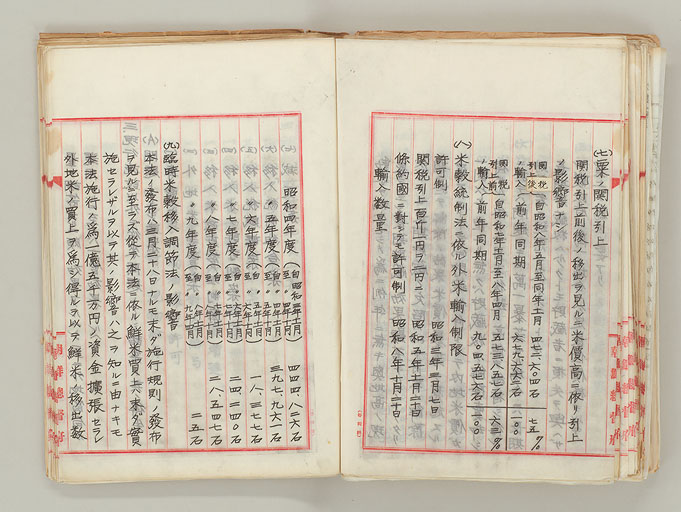 (七)粟ノ関税引上
関税引上前後ノ移出ヲ見ルニ米價高ニ依リ引上
ノ影響ナシ
関税引上後 (自昭和八年五月至同年十月) 四七二、六〇四石 七五%
ノ輸入 前年同期 六七九、六六二石 一〇〇
関税引上前 (自昭和七年十月至八年四月 五七三、八五七石 六三%
ノ輸入 前年同期 九〇四、五七六石 一〇〇
(八)米穀統制法ニ依ル外米輸入制限
許可制 昭和三年三月七日
関税引上百斤一円ヲ二円ニ 昭和五年十月二十日
條約國ニ對シテモ許可制 昭和八年十月二十日
輸入数量
昭和四年度(自昭和三年十一月至〃四年十月) 四四四、八二六石
〃五年度(自〃四年十一月至〃五年十月) 三九七、九六一石
〃六年度(自〃五年十一月至〃六年十月) 一八、三七七石
〃七年度(自〃六年十一月至〃七年十月) 一四、二四〇石
〃八年度(自〃七年十一月至〃八年十月) 二八、五四七石
〃九年度(自〃八年十一月至〃九年四月) 二五石
(九)臨時米穀移入調節法ノ影響
本法ノ發布ハ三月二十八日ナルモ未ダ施行規則ノ發布
ヲ見ルニ至ラズ從テ本法ニ依ル鮮米買上ハ未ダ實
施セラレザルヲ以テ其ノ影響ハ之ヲ知ルニ由ナキモ
本法施行ノ為一億五千万円ノ資金擴張セラレ
外地米ノ買上ヲ為シ得ルヲ以テ鮮米ノ移出数